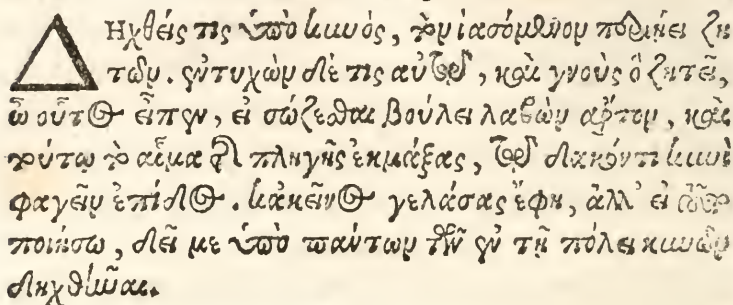 ΔΗχθείς τις ὑπὸ κυνός, τὸν ἰασόμενον περιῄει ζη
τῶν. ἐντυχὼν δέ τις αὐτῷ, καὶ γνοὺς ὃ ζητεῖ,
ὦ οὗτος εἶπεν, εἰ σώζεσθαι βούλει λαβὼν ἄρτον, καὶ
τούτῳ τὸ αἷμα τῆς πληγῆς ἐκμάξας, τῷ δακόντι κυνὶ
φαγεῖν ἐπίδος. κἀκεῖνος γελάσας ἔφη, ἀλλ' εἰ τοῦτο
ποιήσω, δεῖ με ὑπὸ πάντων τῶν ἐν τῇ πόλει κυνῶν
δηχθῆναι.